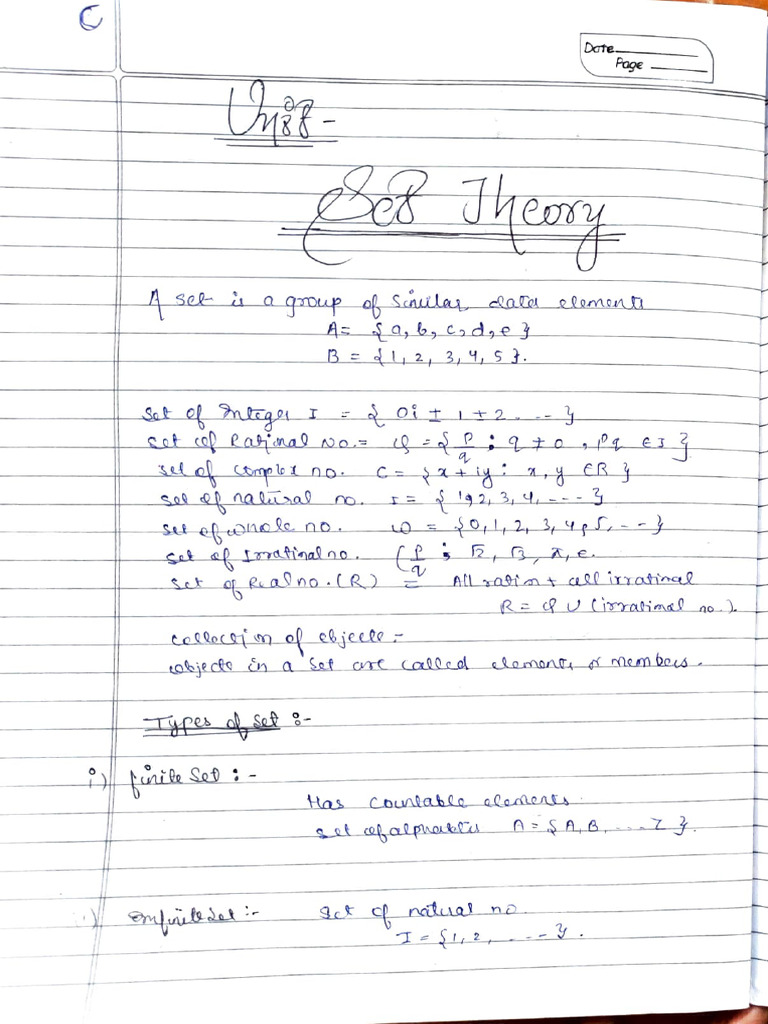 C
Date
Page
Unit-
Set Theory
A set is a group of similar data elements
A = {a, b, c, d, e}
B = {1, 2, 3, 4, 5}.
Set of Integer I = { 0, ± 1 ± 2 . . . - - }
set of Rational No. = Q = { p/q ; q ≠ 0 , p q ∈ I }
set of complex no. C = { x + iy : x, y ∈ R }
set of natural no. I = { 1, 2, 3, 4, - - - - }
set of whole no. W = { 0, 1, 2, 3, 4, 5, . - - }
set of Irratinal no. ( p/q ; √2, √3, π, e.
set of Real no. (R) = All ration + all irratinal
R = Q ∪ (irratinal no.).
collection of objects -
objects in a set are called elements or members.
Types of set :-
i) finite set : -
Has countable elements
set of alphabets A = { A, B, .... Z }.
) Infinite set :- set of natural no.
I = { 1, 2, . . . - - }.